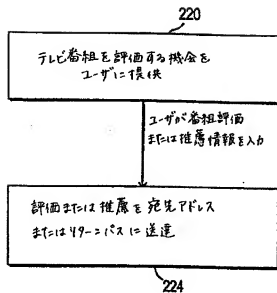 220
テレビ番組を評価する機会を
ユーザに提供
ユーザが番組評価
または推薦情報を入力
評価または推薦を宛先アドレス
またはリターンパスに送達
224